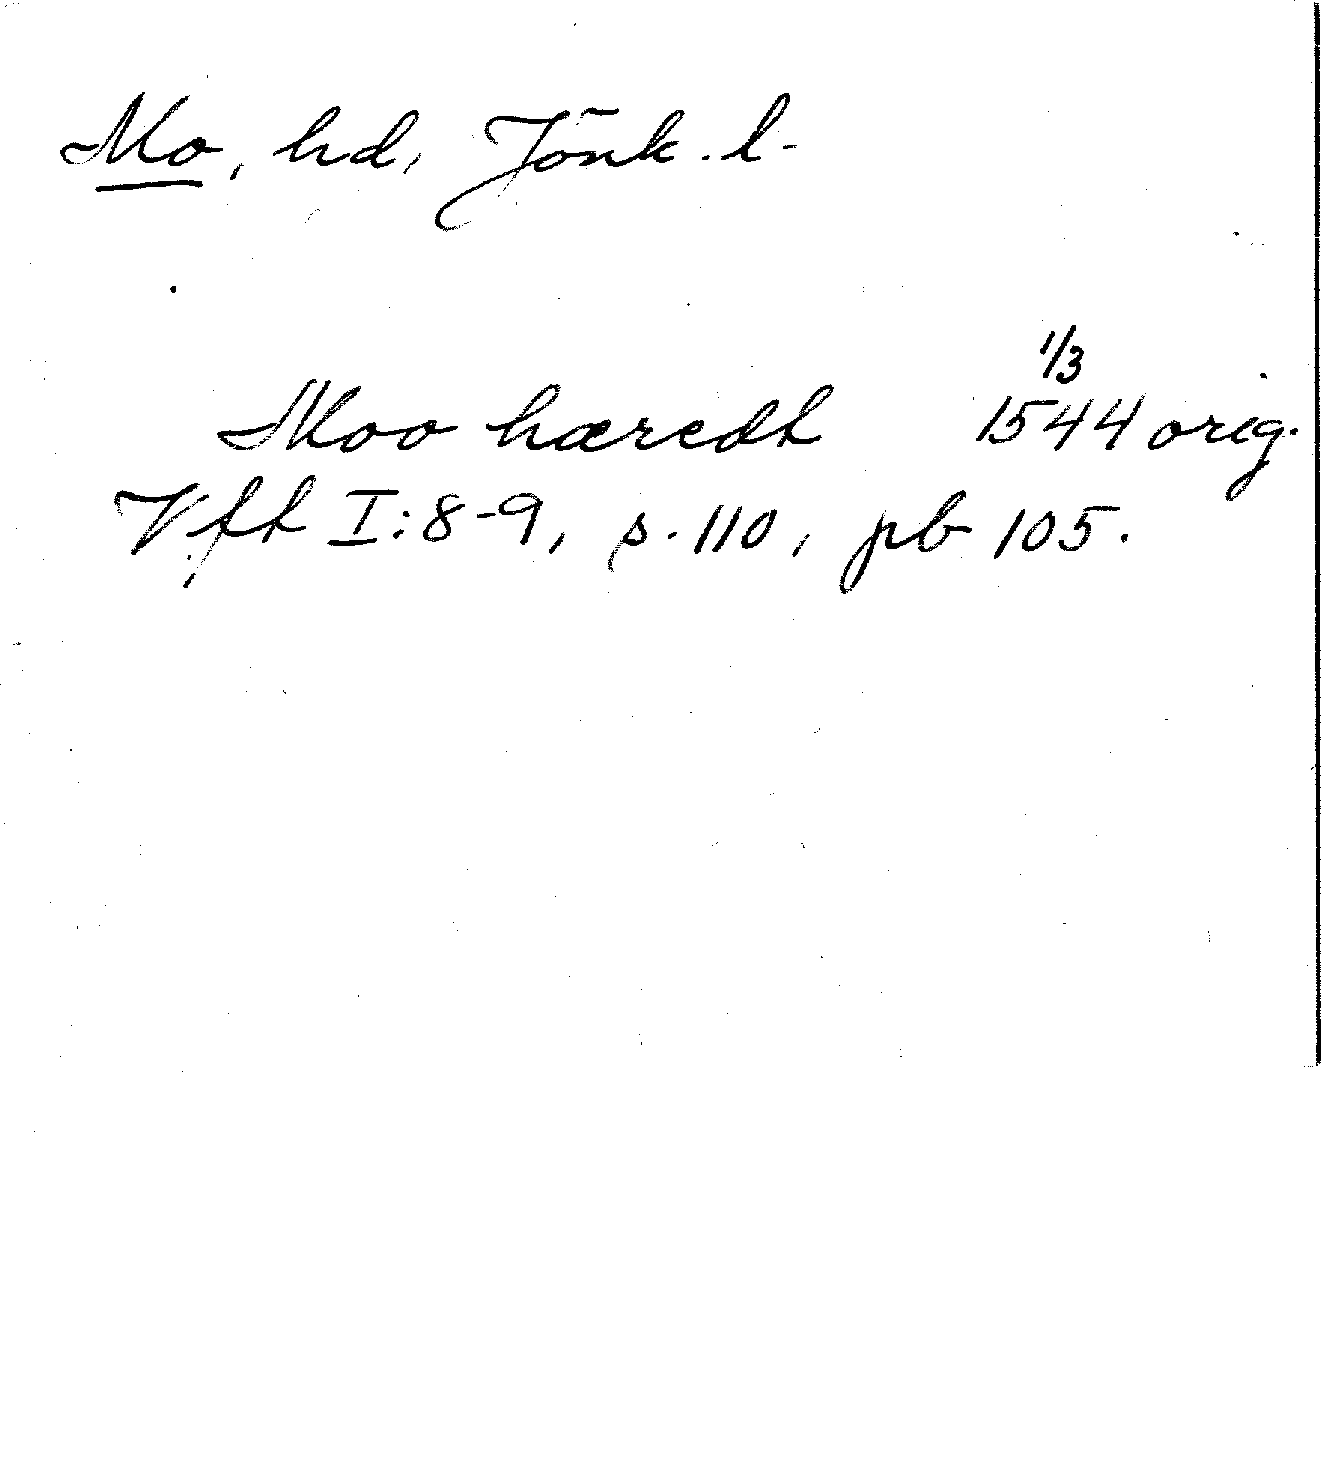 Mo, hd, Jönk. l.
Moo hæredt 1/3 1544 orig.
Vft I:8-9, s. 110, pb 105.